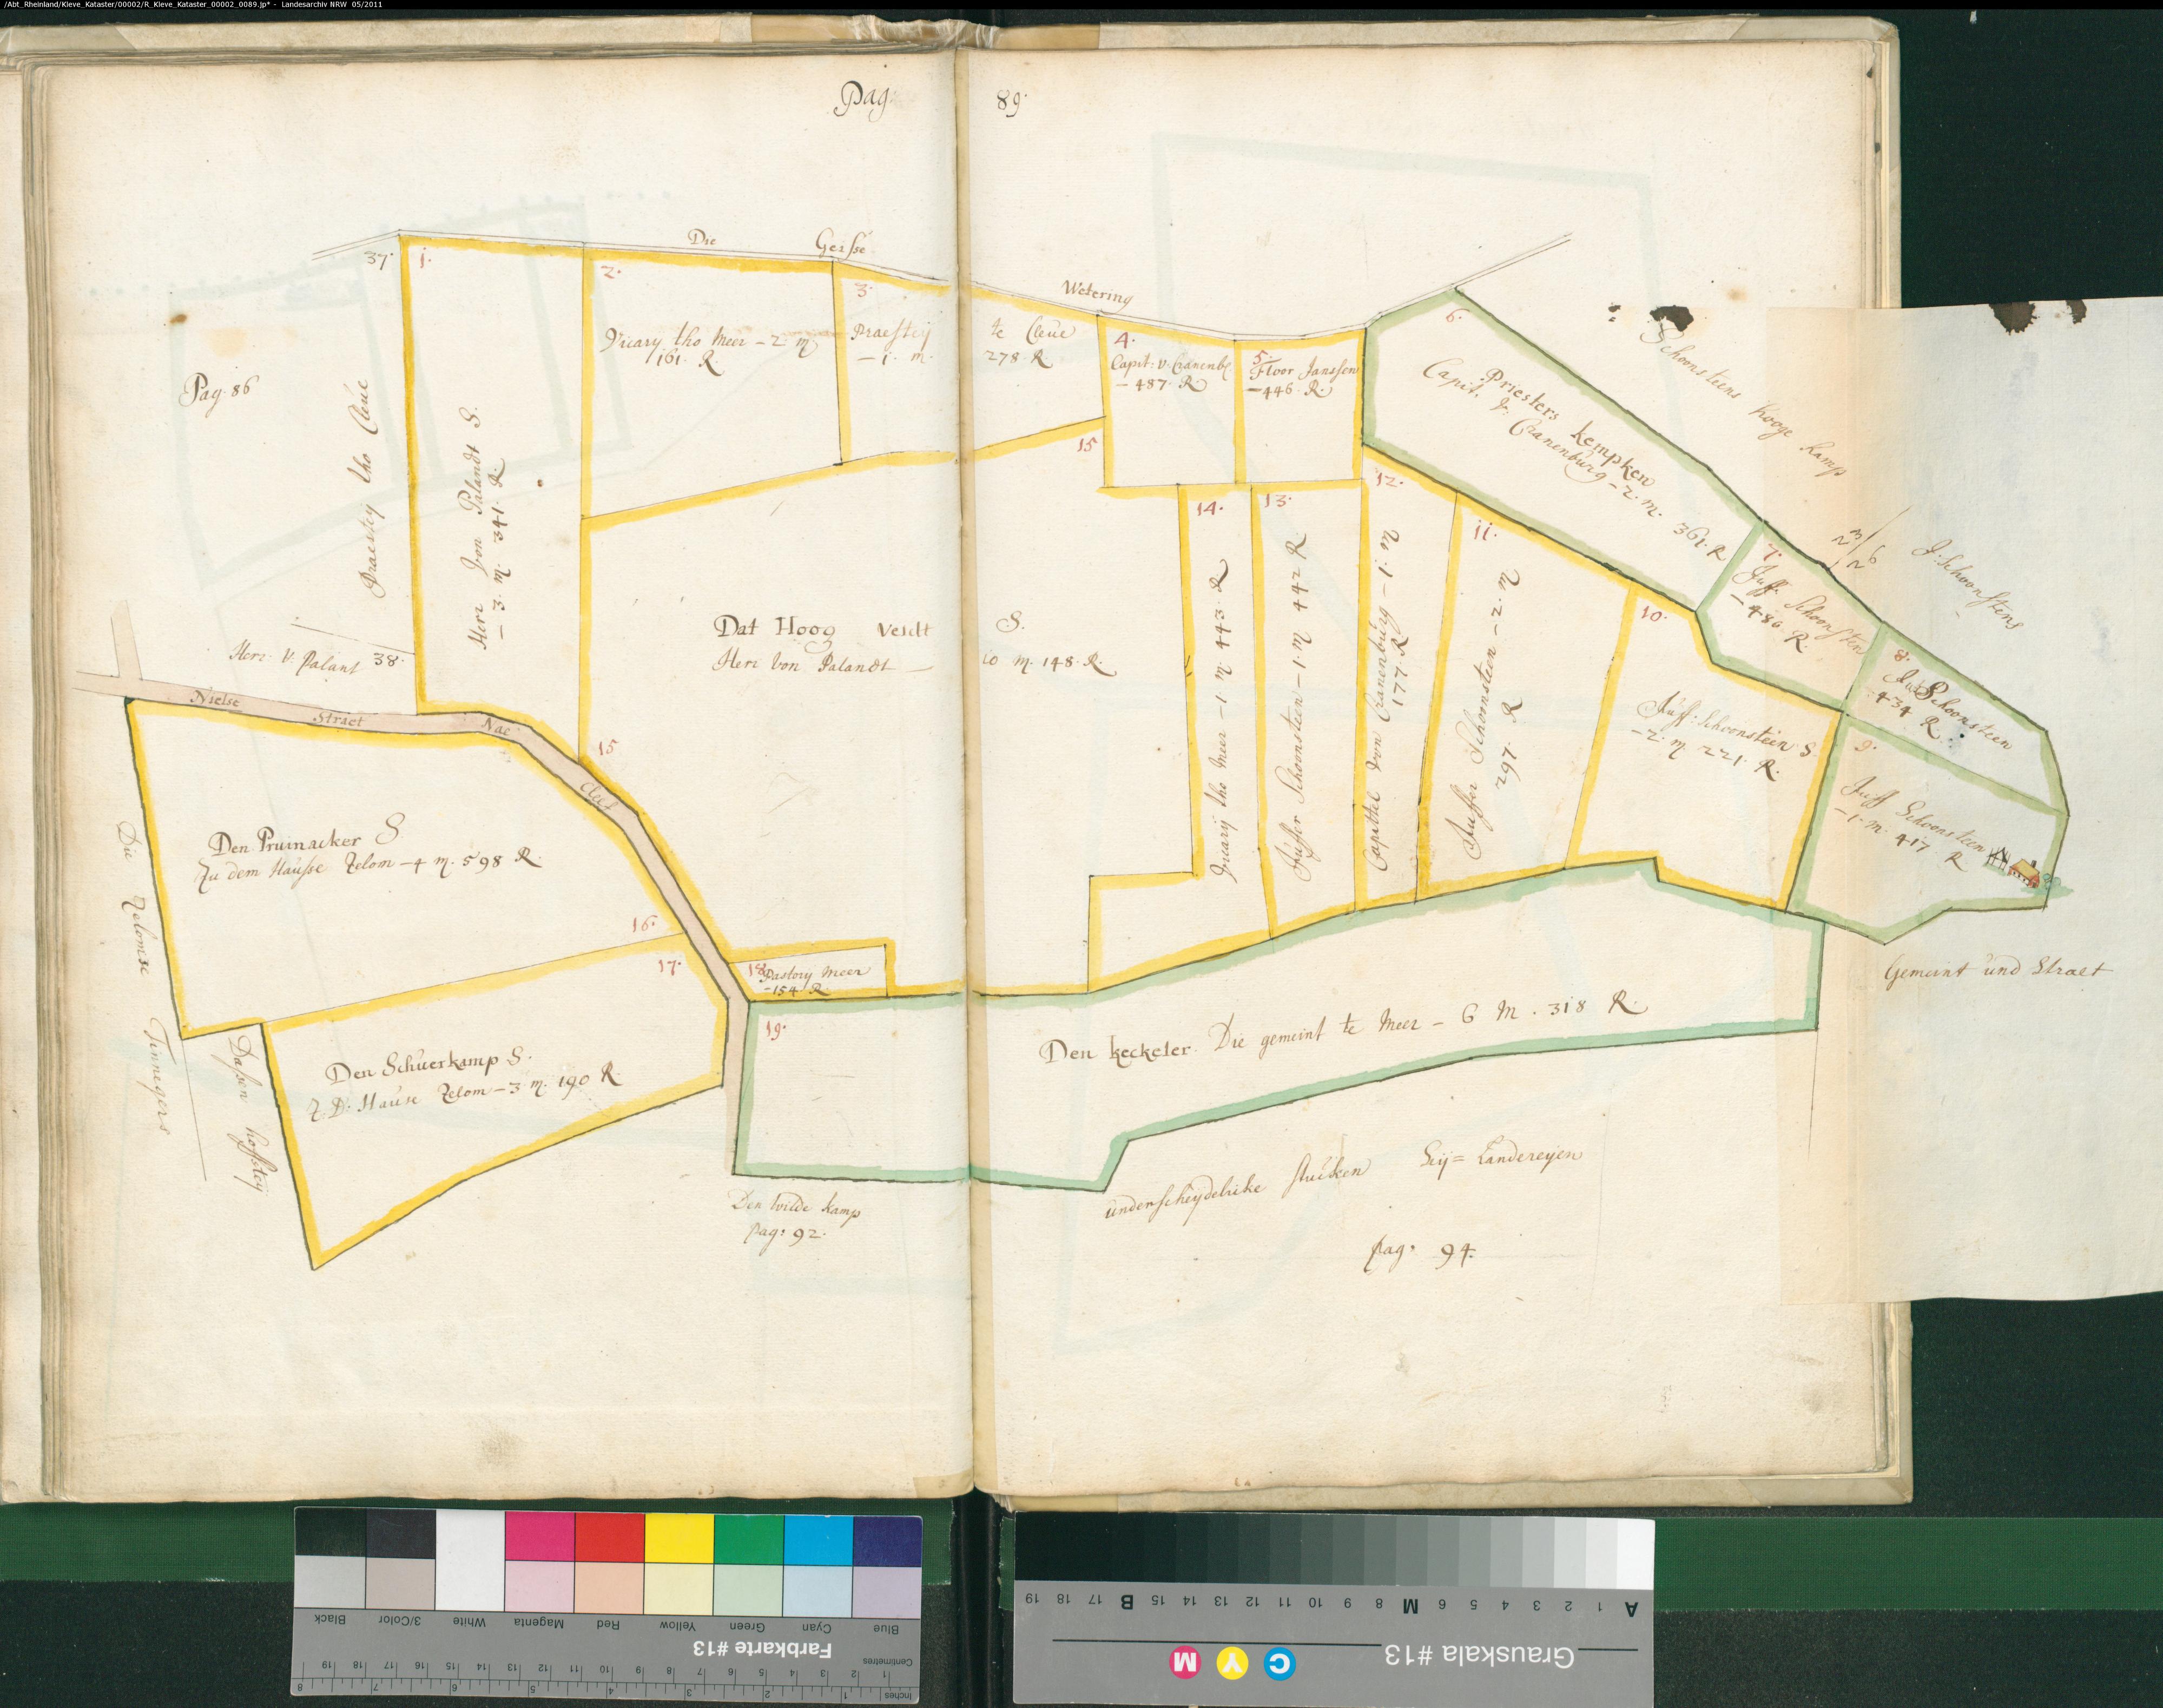 /Abt_Rheinland/Kleve_Kataster/00002/R_Kleve_Kataster_00002_0089.jp* - Landesarchiv NRW 05/2011
Pag. 89.
Die Geisse Wetering
37.
Pag. 86
Praestey tho Cleue
Herr V. Palant 38.
1.
Herr Von Palandt S.
– 3. m. 341. R.
2.
Vicary tho Meer – 2. m
161. R
3.
Praestey te Cleue
– 1. m. 278. R
4.
Capit: v. Cranenb
– 487. R
5.
Floor Janssen
– 446. R.
6.
Priesters kempken
Capit. V. Cranenburg – 2. m. 361. R
Schoonsteens hooge kamp
7.
Juff. Schoonsten
– 486 R.
J. Schoonstens
8.
Schoonsteen
434 R.
9.
Juff Schoonsteen
– 1. m. 417 R
10.
Juff: Schoonsteen S
– 2. m 221. R.
11.
Juffer Schoonsteen – 2. m
297. R
12.
Capittel von Cranenburg – 1. m
177. R
13.
Juffer Schoonsteen – 1. m 442 R
14.
Vicarij tho Meer – 1 m 443. R
15
Dat Hoog Veldt S.
Herr Von Palandt – 10 m. 148. R.
15
Nielse Straet Nae Cleef
Den Pruinacker S
Zu dem Hausse Zelom – 4 m. 598 R.
16.
17.
Den Schuerkamp S.
Z. D. Hause Zelom – 3 m. 190 R.
Die Zelomse Timmegers
Dassen hoffstey
18
Pastory Meer
– 154 R.
19.
Den keckeler. Die gemeint te Meer – 6 m. 318 R.
Gemeint und Straet
Den wilde kamp
pag: 92.
underscheydelicke stucken Landereyen
pag. 94.
Black 3/Color White Magenta Red Yellow Green Cyan Blue
Farbkarte #13
Centimetres
Inches
A 1 2 3 4 5 6 M 8 9 10 11 12 13 14 15 B 17 18 19
Grauskala #13
C Y M